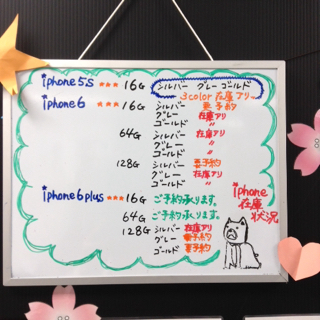 iphone5s ★★★ 16G シルバー グレー ゴールド
3color 在庫アリ
iphone6 ★ ★★★ 16G シルバー 要予約
グレー 在庫アリ
ゴールド 〃
64G シルバー 在庫アリ
グレー 〃
ゴールド 〃
128G シルバー 要予約
グレー 在庫アリ
ゴールド 〃
iphone6plus ★★★ 16G ご予約承ります。
64G ご予約承ります。
128G シルバー 在庫アリ
グレー 要予約
ゴールド 要予約
iphone
在庫
状況